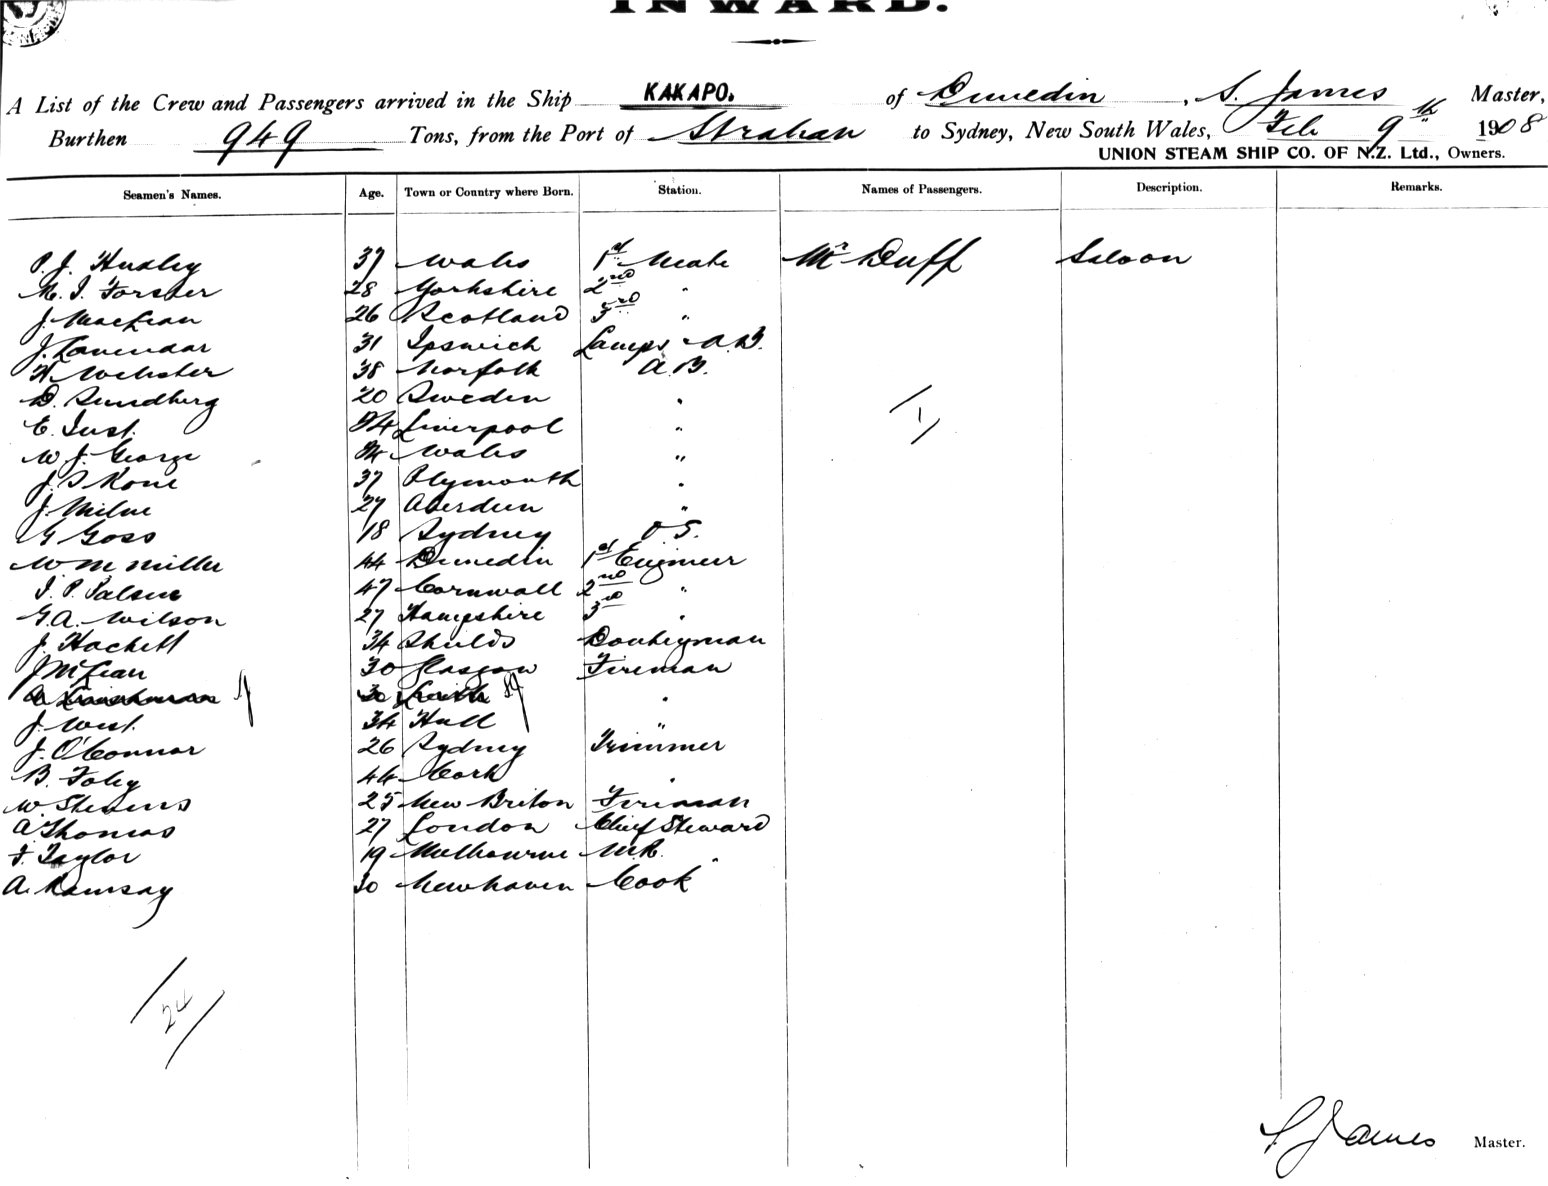 INWARD.
A List of the Crew and Passengers arrived in the Ship KAKAPO. of Dunedin, S. James Master,
Burthen 949 Tons, from the Port of Strahan to Sydney, New South Wales, Feb 9th 1908
UNION STEAM SHIP CO. OF N.Z. Ltd., Owners.
Seamen's Names. Age. Town or Country where Born. Station. Names of Passengers. Description. Remarks.
P. J. Huxley 37 Wales 1st Mate Mr Duff Saloon
M. I. Forster 28 Yorkshire 2nd "
J. MacLean 26 Scotland 3rd "
J. Lavendar 31 Ipswich Lamps A.B.
H. Webster 38 Norfolk A.B.
D. Sundberg 20 Sweden "
E. Just. Liverpool "
W. J. George Wales "
J. 37 Plymouth "
J. Milne 27 Aberdeen "
G Goss 18 Sydney O S.
Wm Miller 44 Dunedin 1st Engineer
47 Cornwall 2nd "
G. A. Wilson 27 Hampshire 3rd "
J. Hackett 34 Shields Donkeyman
J McLean 30 Glasgow Fireman
30 Leith "
J. West. 34 Hull "
J. O'Connor 26 Sydney Trimmer
B. Foley 44 Cork "
W Stevens 25 New Briton Fireman
A Thomas 27 London Chief Steward
F. Taylor 19 Melbourne M.R.
A. Ramsay 30 Newhaven Cook
1
24
S. James Master.